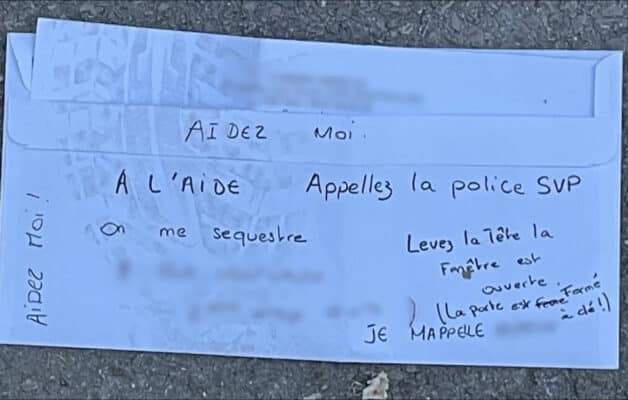 AIDEZ MOI.
A L'AIDE Appellez la police SVP
On me sequestre
Levez la Tête la
Fenêtre est
ouverte.
(La porte est Fermé
à clé!)
JE MAPPELLE
AIDEZ MOI!